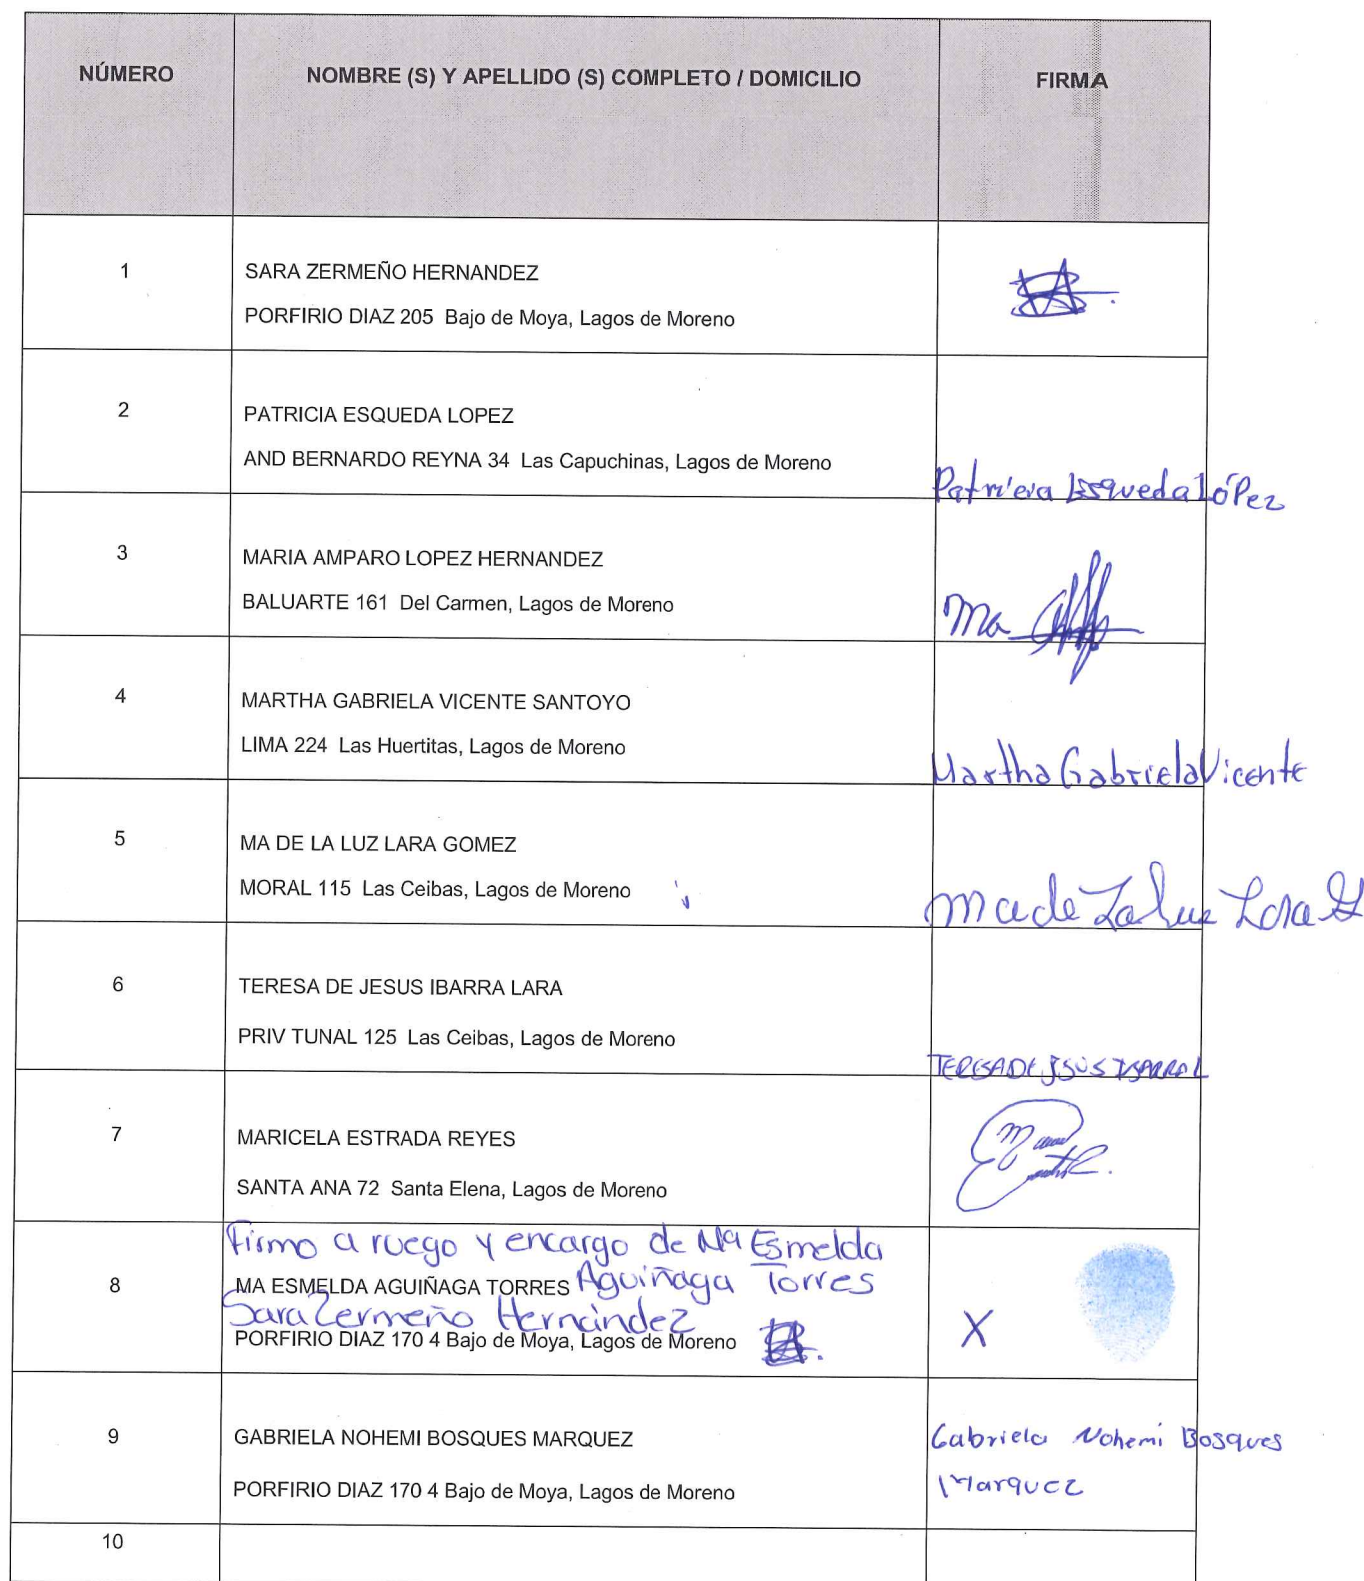 NÚMERO NOMBRE (S) Y APELLIDO (S) COMPLETO / DOMICILIO FIRMA
1 SARA ZERMEÑO HERNANDEZ
PORFIRIO DIAZ 205 Bajo de Moya, Lagos de Moreno
2 PATRICIA ESQUEDA LOPEZ
AND BERNARDO REYNA 34 Las Capuchinas, Lagos de Moreno
Patricia Esqueda López
3 MARIA AMPARO LOPEZ HERNANDEZ
BALUARTE 161 Del Carmen, Lagos de Moreno
Ma
4 MARTHA GABRIELA VICENTE SANTOYO
LIMA 224 Las Huertitas, Lagos de Moreno
Martha Gabriela Vicente
5 MA DE LA LUZ LARA GOMEZ
MORAL 115 Las Ceibas, Lagos de Moreno
Ma de La Luz Lara G
6 TERESA DE JESUS IBARRA LARA
PRIV TUNAL 125 Las Ceibas, Lagos de Moreno
TERESA DE JESUS IBARRA L
7 MARICELA ESTRADA REYES
SANTA ANA 72 Santa Elena, Lagos de Moreno
Firmo a ruego y encargo de Ma Esmelda
8 MA ESMELDA AGUIÑAGA TORRES Aguiñaga Torres
Sara Zermeño Hernández
PORFIRIO DIAZ 170 4 Bajo de Moya, Lagos de Moreno
X
9 GABRIELA NOHEMI BOSQUES MARQUEZ
PORFIRIO DIAZ 170 4 Bajo de Moya, Lagos de Moreno
Gabriela Nohemi Bosques
Marquez
10